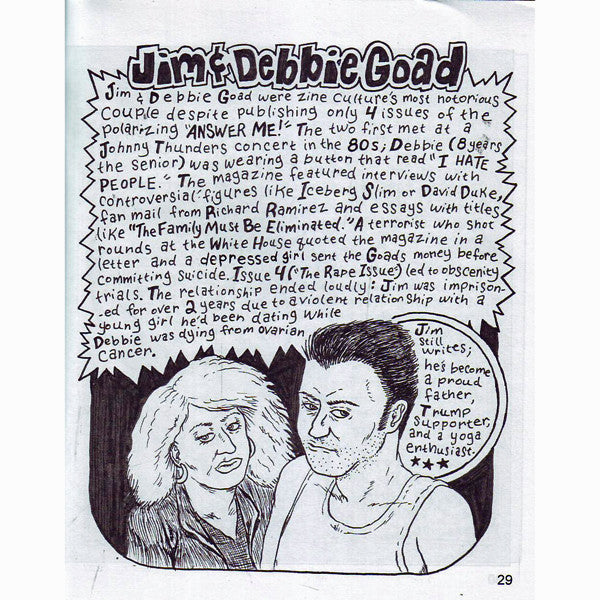 Jim & Debbie Goad
Jim & Debbie Goad were zine culture's most notorious
couple despite publishing only 4 issues of the
polarizing "ANSWER ME!" The two first met at a
Johnny Thunders concert in the 80s; Debbie (8 years
the senior) was wearing a button that read "I HATE
PEOPLE." The magazine featured interviews with
controversial figures like Iceberg Slim or David Duke,
fan mail from Richard Ramirez and essays with titles
like "The Family Must Be Eliminated." A terrorist who shot
rounds at the White House quoted the magazine in a
letter and a depressed girl sent the Goads money before
committing suicide. Issue 4 ("The Rape Issue") led to obscenity
trials. The relationship ended loudly: Jim was imprison-
-ed for over 2 years due to a violent relationship with a
young girl he'd been dating while
Debbie was dying from ovarian
cancer.
Jim
still
writes;
he's become
a proud
father,
Trump
supporter,
and a yoga
enthusiast.
29